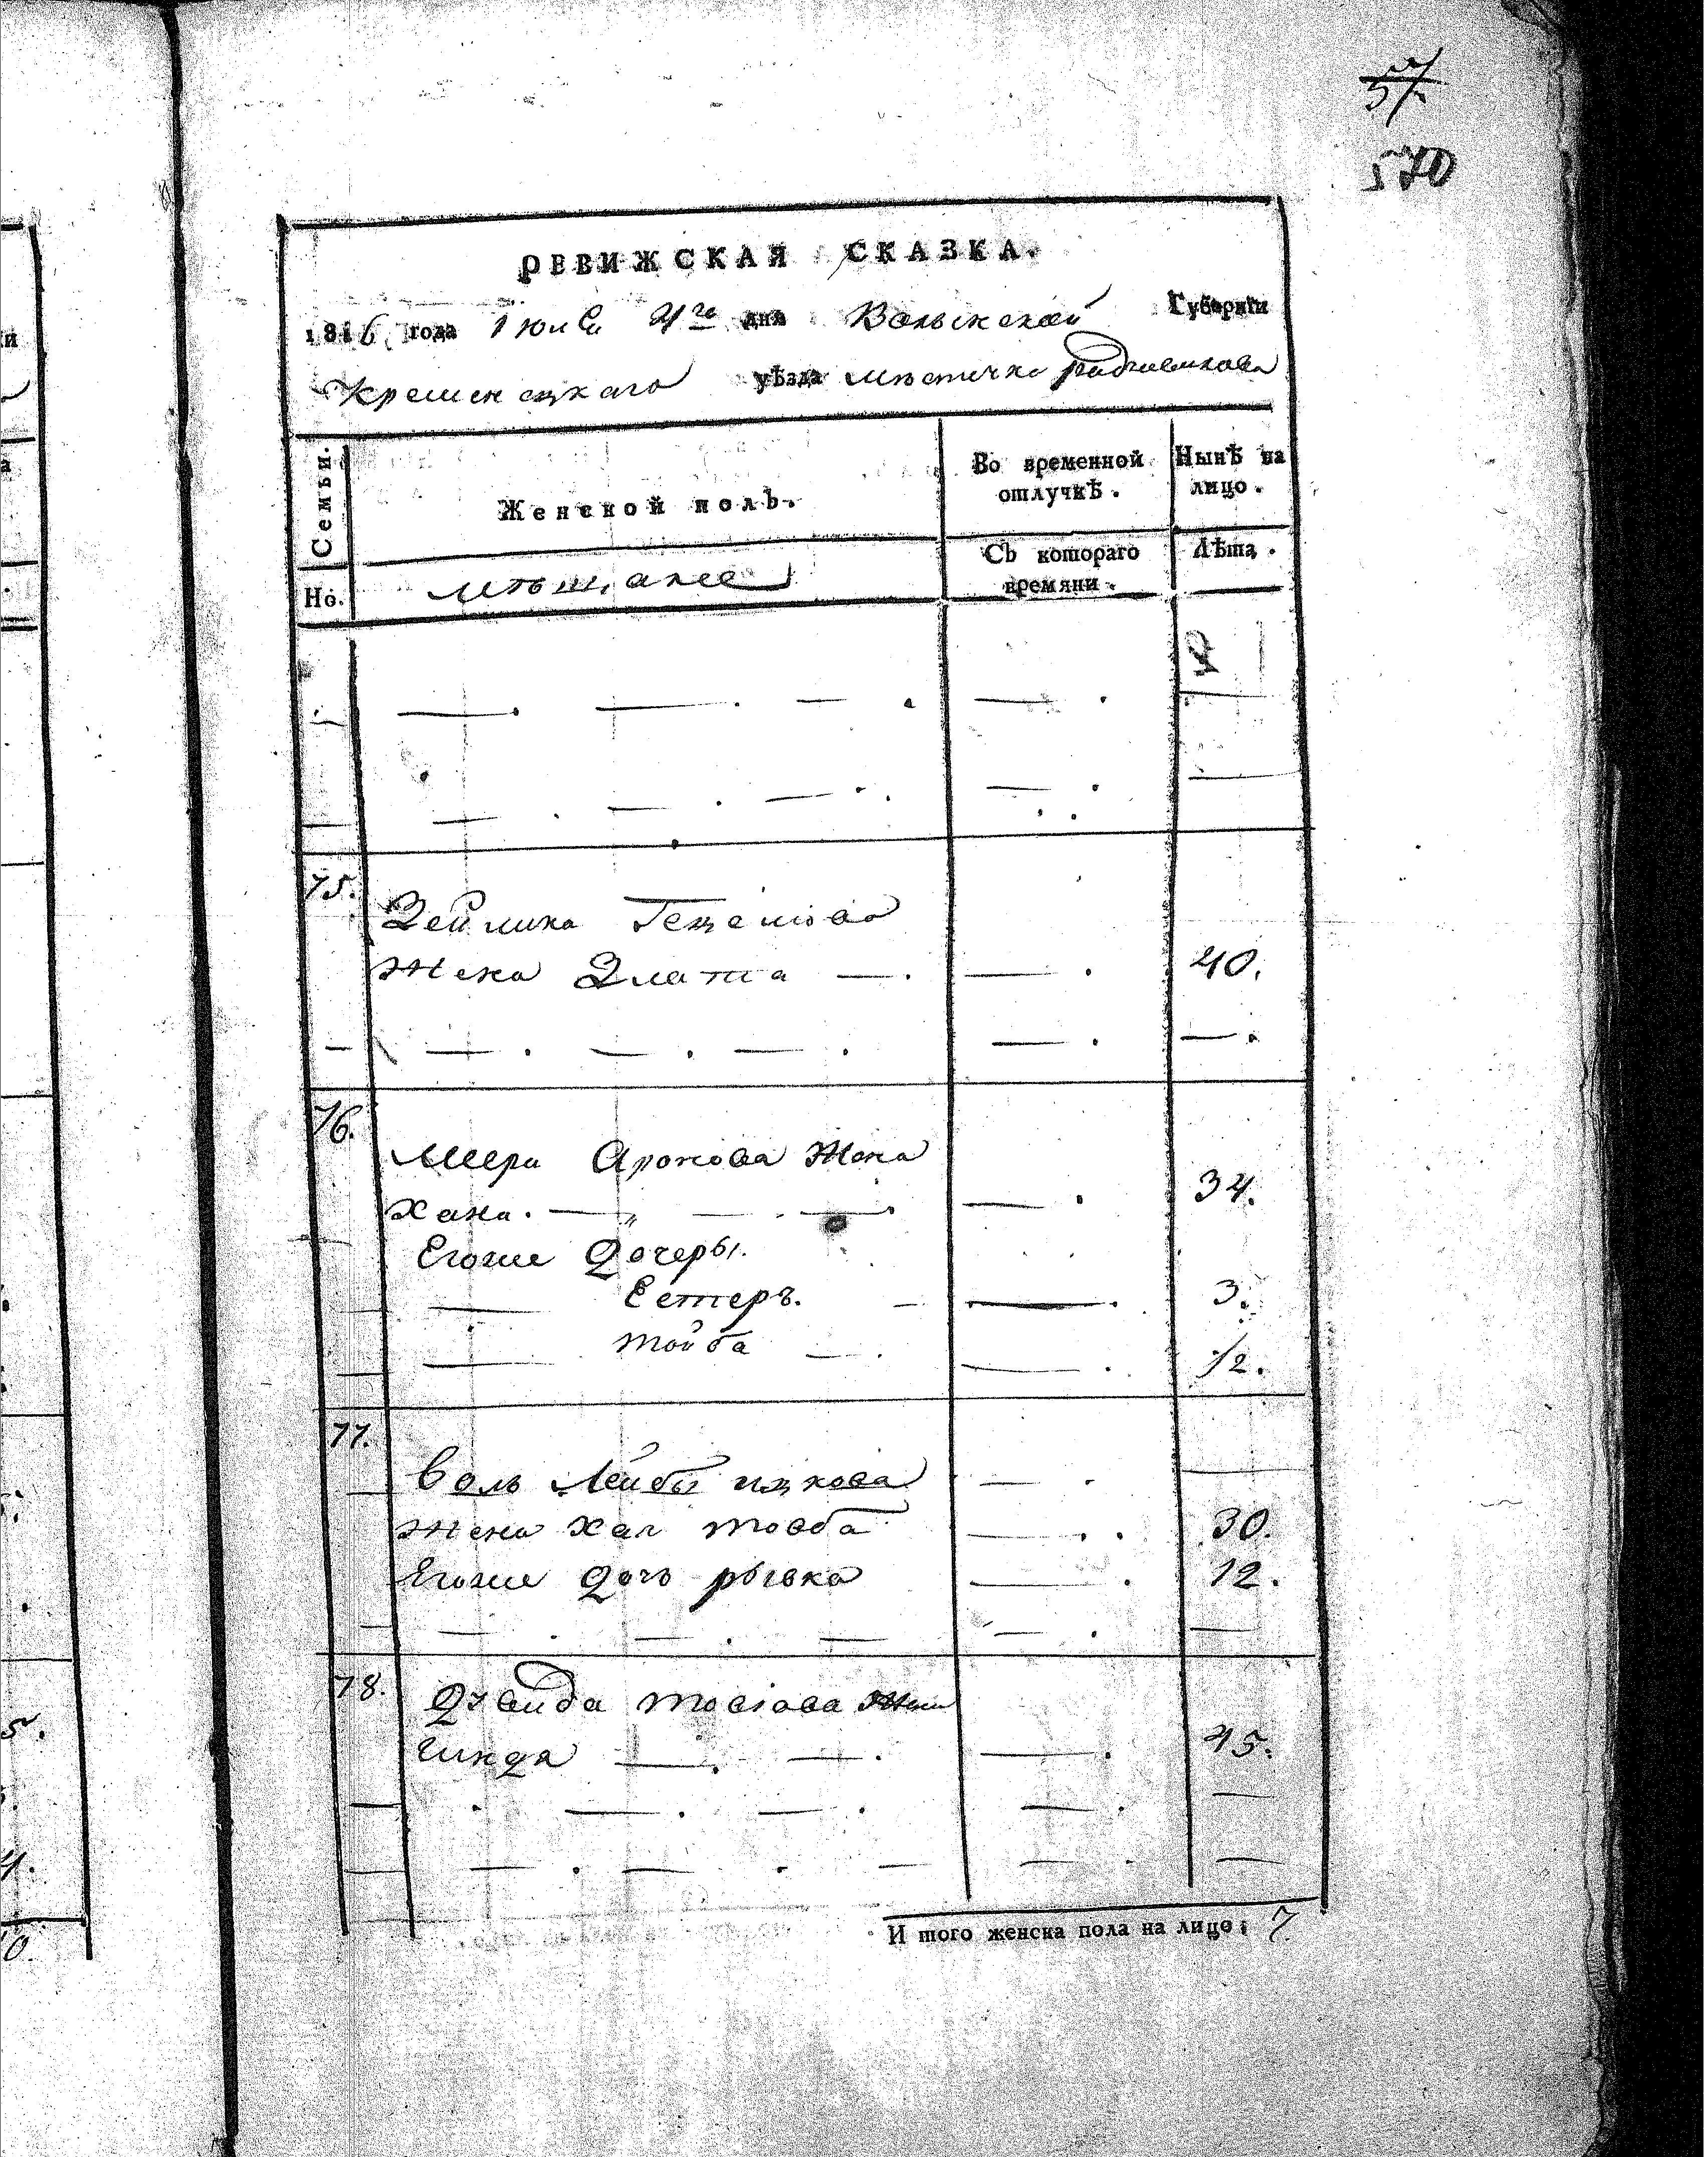 57
570
РЕВИЖСКАЯ СКАЗКА.
1816 года Июня 4го дня Волынской Губерніи
Кременецкаго уѣзда мѣстичка радзивилова
Семьи.
Женской полъ.
Во временной отлучкѣ.
Нынѣ на лицо.
Но.
мѣщане
Съ котораго времяни.
Лѣта.
75.
Зейлика Гецелова
жена Злата — . — . 40.
76.
Меера Аронова жена
Хана. — . 34.
Егоже дочеры.
Естеръ. — . 3.
тойба — . 1/2.
77.
Воль Лейбы ицкова
жена Хая товба — . 30.
Егоже дочь рывка — . 12.
78.
тосіова жена
гинда — . — . 45.
И того женска пола на лицо: 7